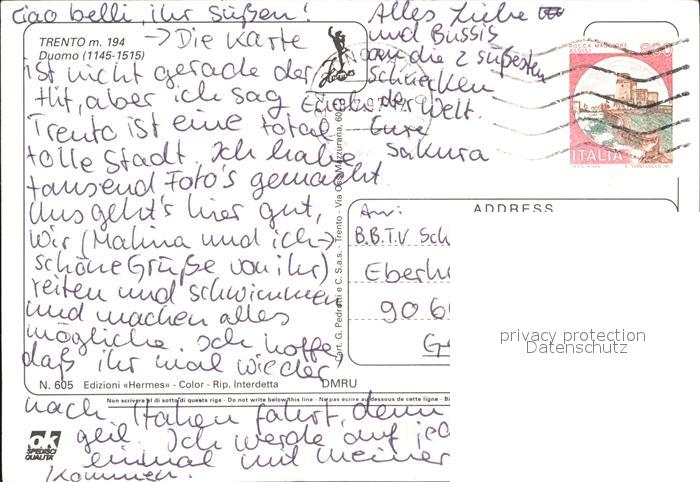 Ciao belli, ihr Süßen!
TRENTO m. 194
Duomo (1145-1515)
-> Die Karte
ist nicht gerade der
Hit, aber ich sag Euch:
Trento ist eine total
tolle Stadt. Ich habe
tausend Foto's gemacht.
Uns geht's hier gut,
wir (Malina und ich->
schöne Grüße von ihr)
reiten und schwimmen
und machen alles
mögliche. Ich hoffe,
daß ihr mal wieder
N. 605 Edizioni «Hermes» - Color - Rip. Interdetta
DMRU
Non scrivere al di sotto di questa riga - Do not write below this line - Ne pas ecrire au dessous de cette ligne - Bi
nach Italien fahrt, denn
geil. Ich werde auf jed
einmal mit meiner
kommen.
ok
SPEDISCI
QUALITA'
Alles Liebe
und Bussis
an die 2 süßesten
Schnecken
der Welt.
Eure
Sakura
ROCCA MAGGIORE
ASSISI
ITALIA
Cart. G. Pedrotti e C. S.a.s. - Trento - Via Oss Mazzurana, 60
ADDRESS
An:
B.B.T.V Sch
Eberh
90
Ge
privacy protection
Datenschutz